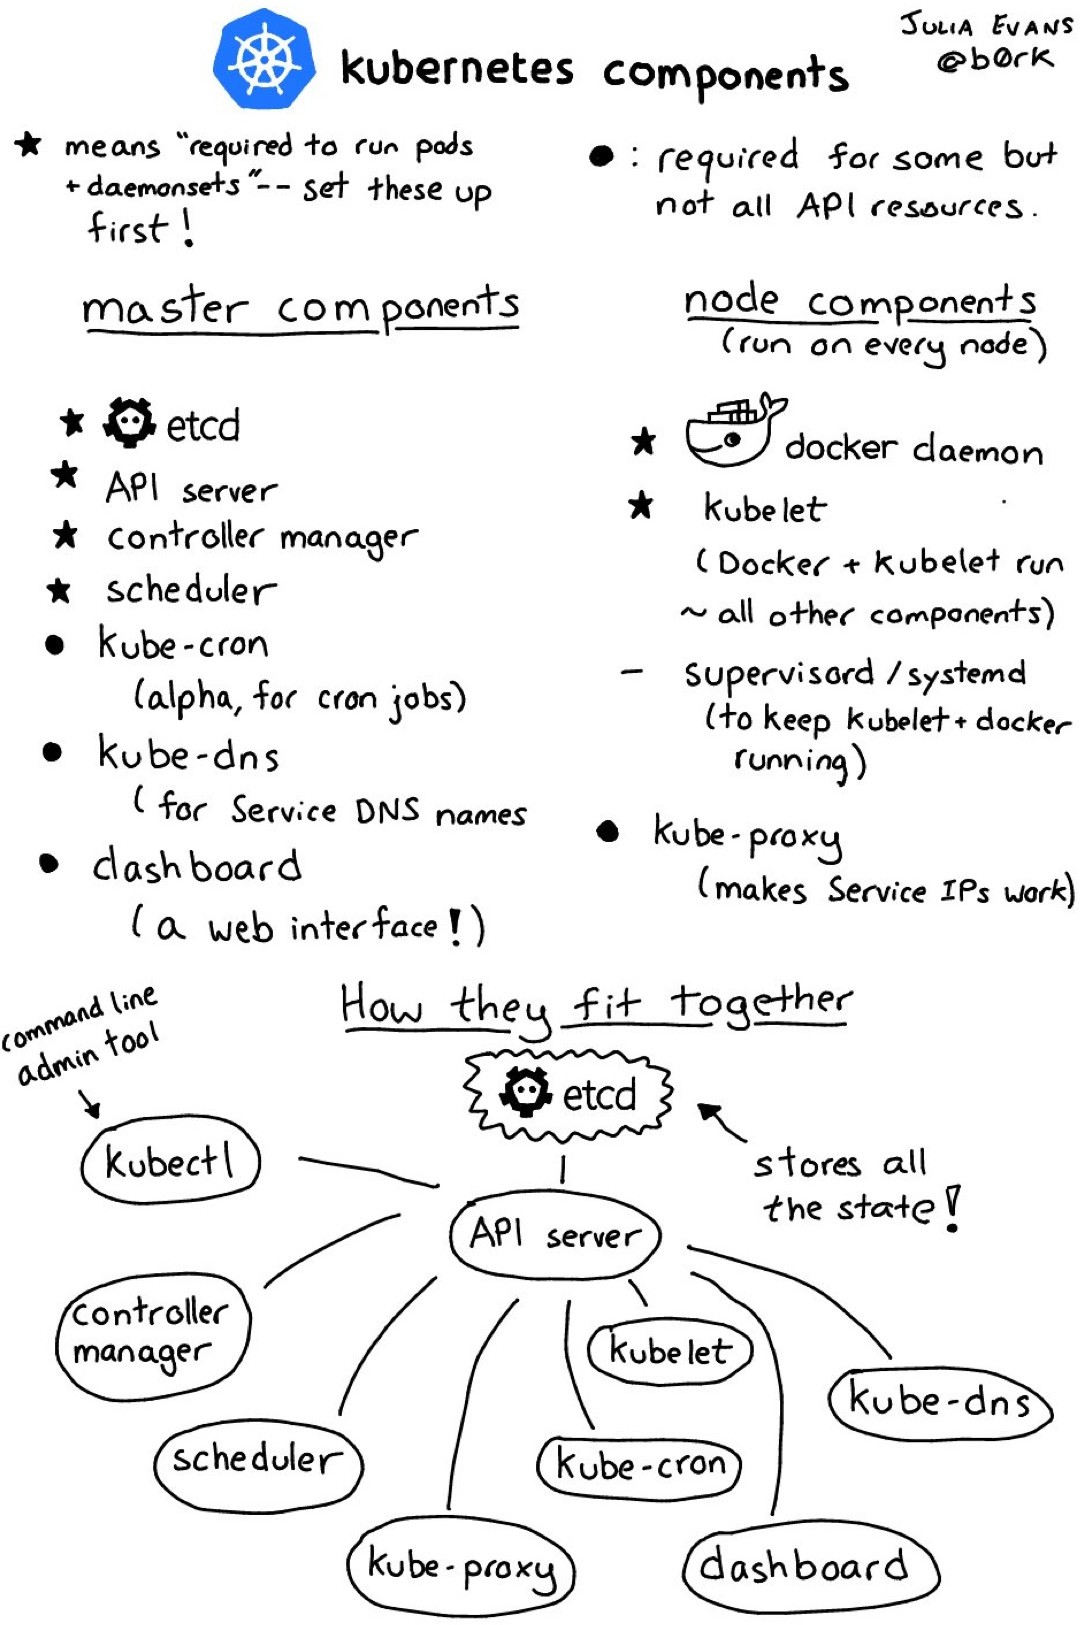 JULIA EVANS
@b0rk
kubernetes components
★ means "required to run pods
+ daemonsets" -- set these up
first!
● : required for some but
not all API resources.
master components
★ etcd
★ API server
★ controller manager
★ scheduler
● kube-cron
(alpha, for cron jobs)
● kube-dns
( for Service DNS names
● dashboard
( a web interface!)
node components
(run on every node)
★ docker daemon
★ kubelet
(Docker + kubelet run
~ all other components)
– supervisord / systemd
(to keep kubelet + docker
running)
● kube-proxy
(makes Service IPs work)
How they fit together
command line
admin tool
etcd
stores all
the state!
kubectl
API server
controller
manager
kubelet
kube-dns
scheduler
kube-cron
kube-proxy
dashboard